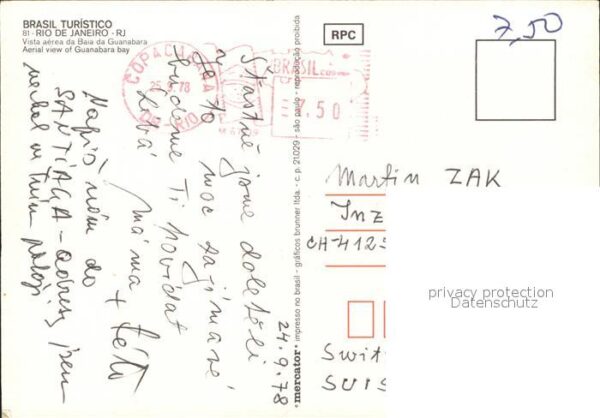 BRASIL TURÍSTICO
81 - RIO DE JANEIRO - RJ
Vista aérea da Baia da Guanabara
Aerial view of Guanabara bay
RPC
7,50
COPACABANA
25.9.78
RIO
BRASIL
7.50
Šťastně jsme doletěli
je to moc zajímavé
budeme Ti povídat
máma + táta
Napiš nám do
SANTIAGA - adresu jsem
24.9.78
mercator® impresso no brasil - gráficos brunner ltda. - c. p. 21029 - são paulo - reprodução proibida
Martin ZAK
Inz
CH-4125
Swit
SUIS
privacy protection
Datenschutz